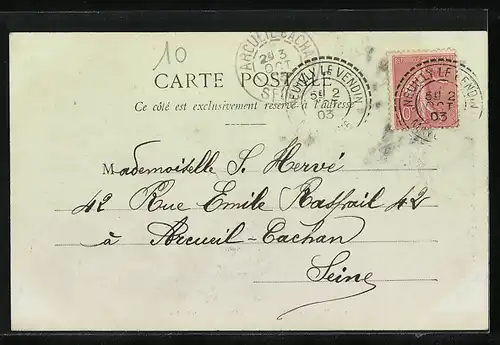 10
ARCUEIL-CACHAN
3
OCT
CARTE POSTALE
NEUILLY LE VENDIN
2
OCT
03
NEUILLY LE VENDIN
2
OCT
03
Ce côté est exclusivement réservé à l'adresse
Mademoiselle S. Hervé
42 Rue Emile Raspail 42
à Arcueil-Cachan
Seine